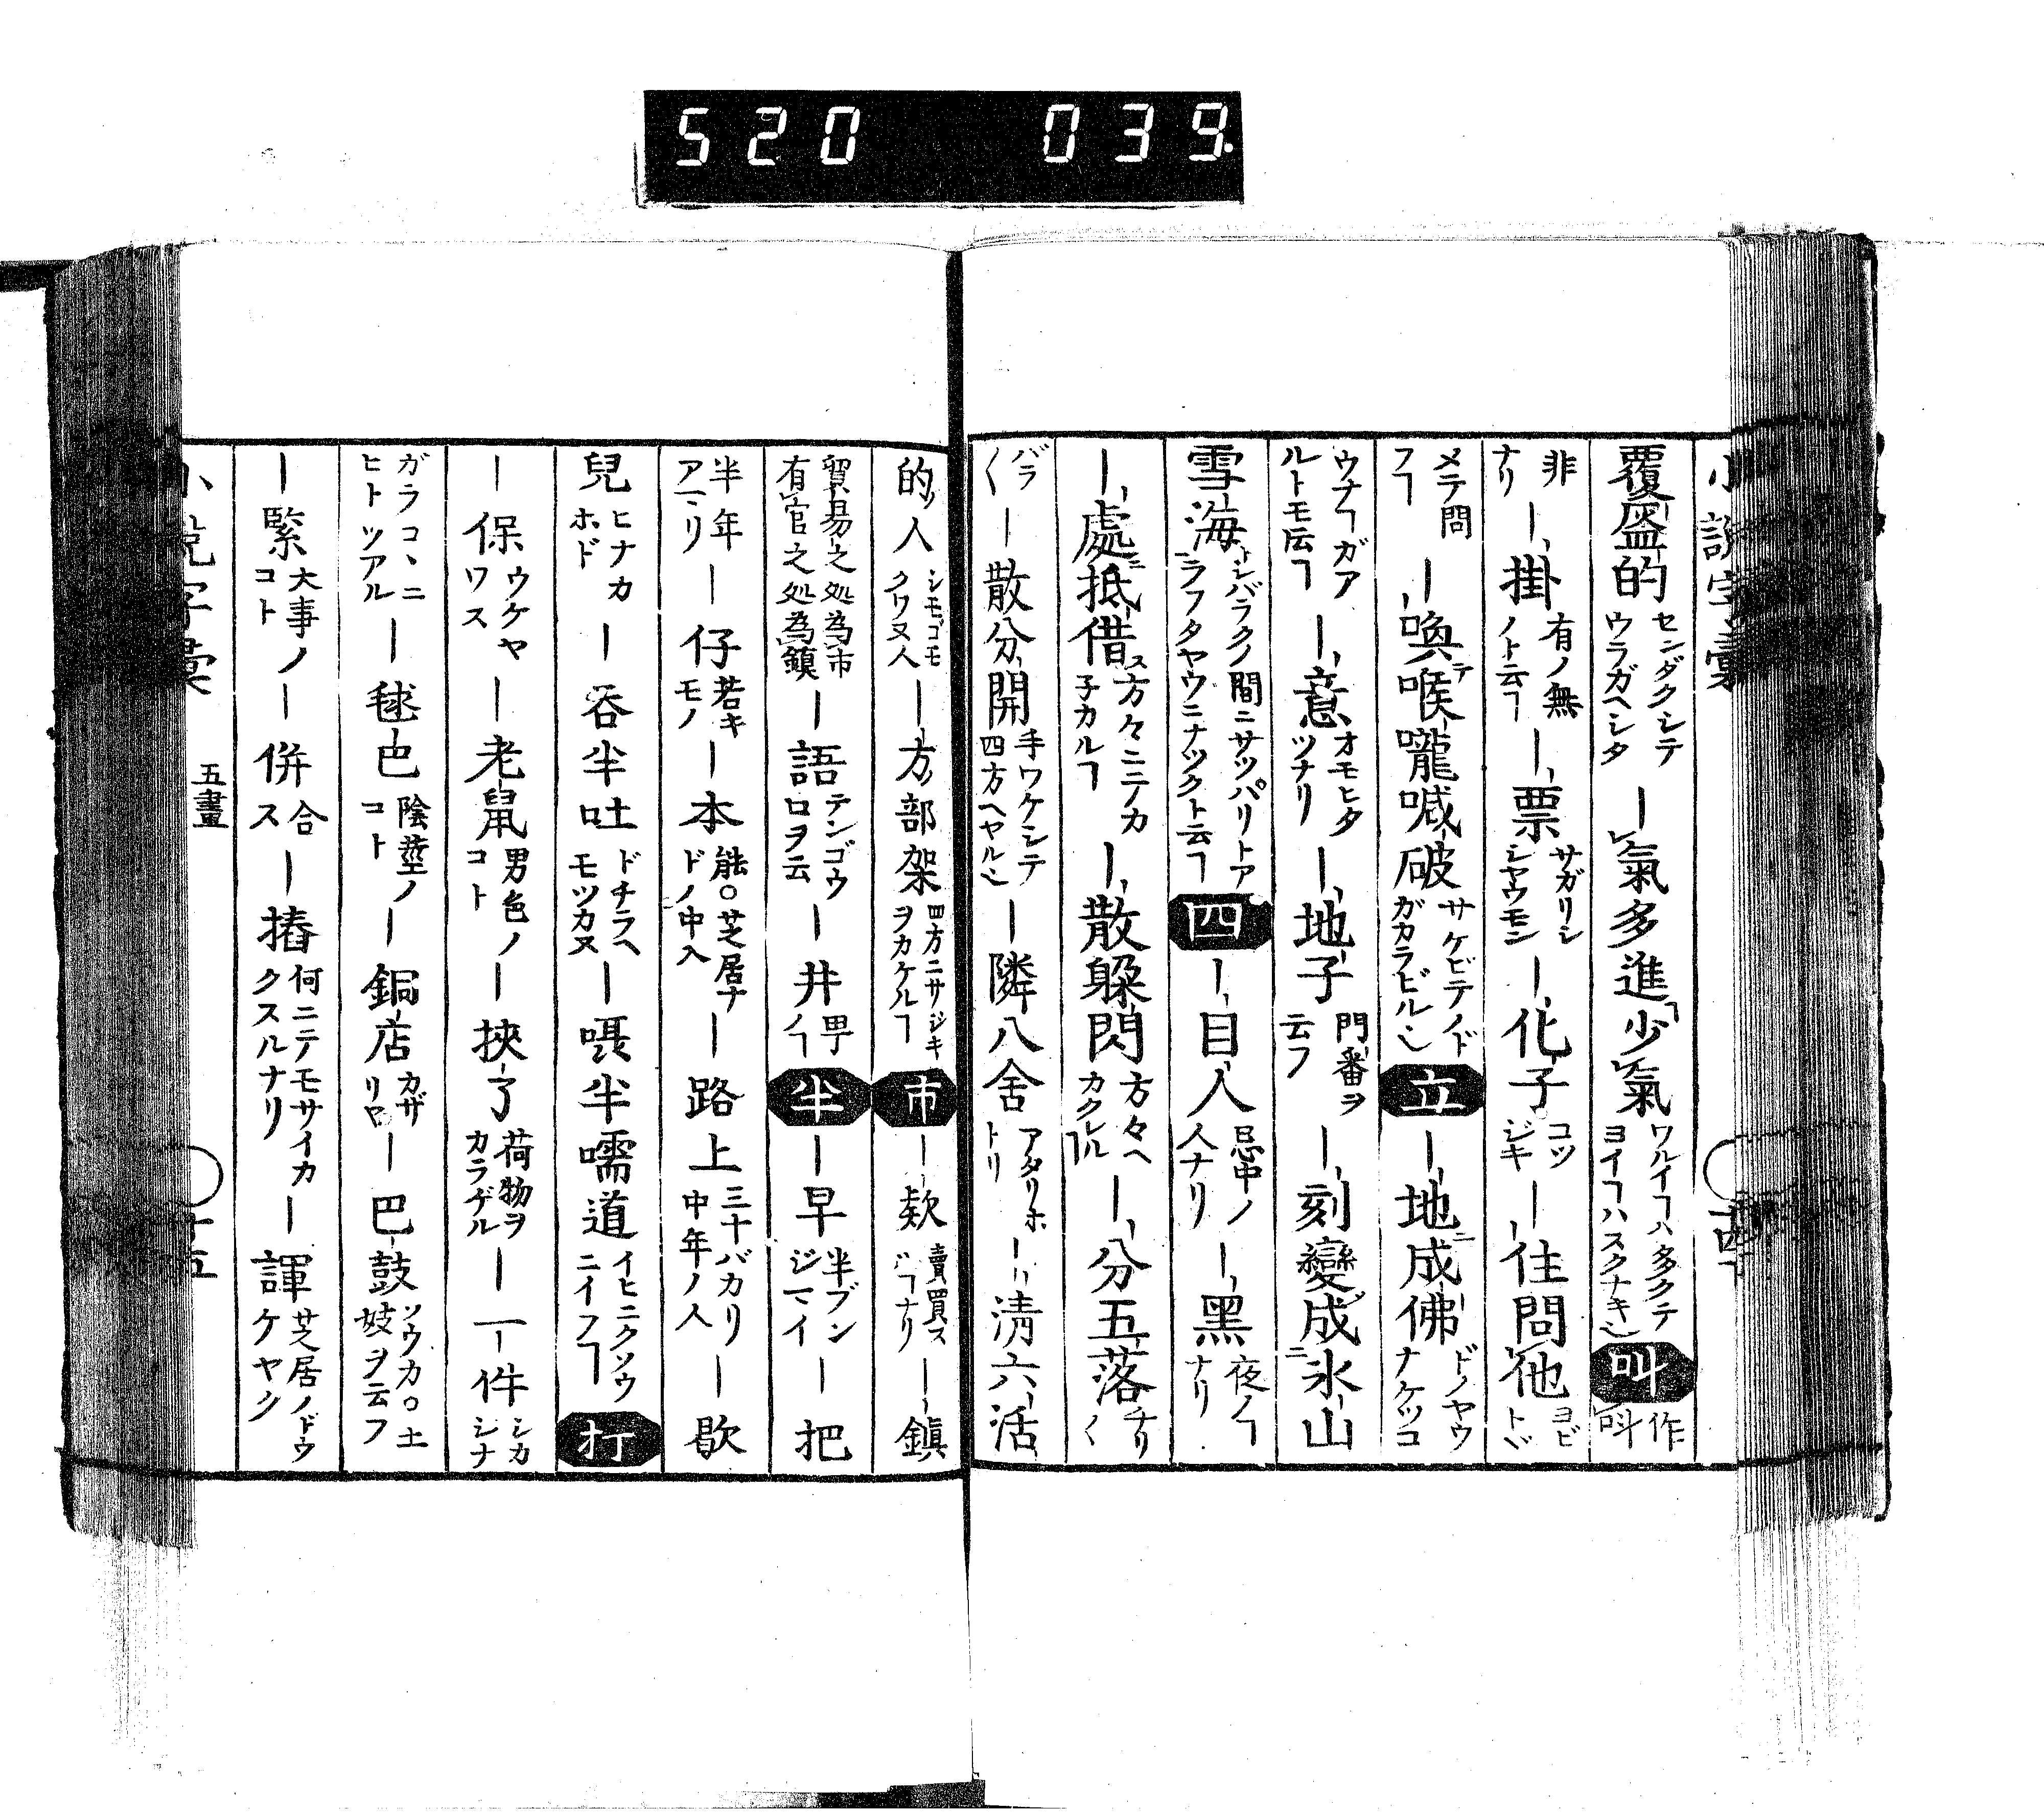 520 039
覆盆的 センダクシテ ウラガヘシタ ー氣多進少氣 ワルイヿハ多クテ ヨイヿハスクナキ 叫 作呌
非ナリ ー掛 有ノ無ノト云ヿ ー票 サガリシ シヤウモン ー化子 コツジキ ー住問他 ヨビトヾ
メテ問フヿ ー喚喉嚨喊破 サケビテノド ガカラビル 立 ー地成佛 ドノヤウ ナケツコ
ウナヿガア ルトモ云ヿ ー意 オモヒタ ツナリ ー地子 門番ヲ云フ ー刻變成氷山
雪海 シバラクノ間ニサツパリトア ラフタヤウニナツクト云ヿ 四 ー目人 忌中ノ人ナリ ー黑 夜ノヿナリ
ー處抵借 方々ニテカ 子カルヿ ー散躱閃 方々ヘ カクレル ー分五落 チリ〱
バラ〱 ー散分開 手ワケシテ 四方ヘヤル ー隣八舍 アタリホトリ ー清六活
的人 シモゴモ クワヌ人 ー方部架 四方ニサジキ ヲカケルヿ 市 ー欵 賣買スヿナリ ー鎮
貿易之処為市 有官之処為鎮 ー語 テンゴウ 口ヲ云 ー井 ノヿ 半 ー早 半ブン ジマイ ー把
半年アマリ ー仔 若キモノ ー本 能○芝居ナ ドノ中入 ー路上 三十バカリ 中年ノ人 ー歇
兒 ヒナカホド ー吞半吐 ドチラヘ モツカヌ ー嗫半嚅道 イヒニクソウ ニイフヿ 打
ー保 ウケヤワス ー老鼠 男色ノコト ー挾了 荷物ヲ カラゲル ー一件 シカシナ
ガラコヽニ ヒトツアル ー毬也 陰莖ノコト ー鋦店 カザリヤ ー巴鼓 ソウカ○土 妓ヲ云フ
ー緊 大事ノコト ー併 合ス ー樁 何ニテモサイカ クスルナリ ー諢 芝居ノドウ ケヤク
五畫